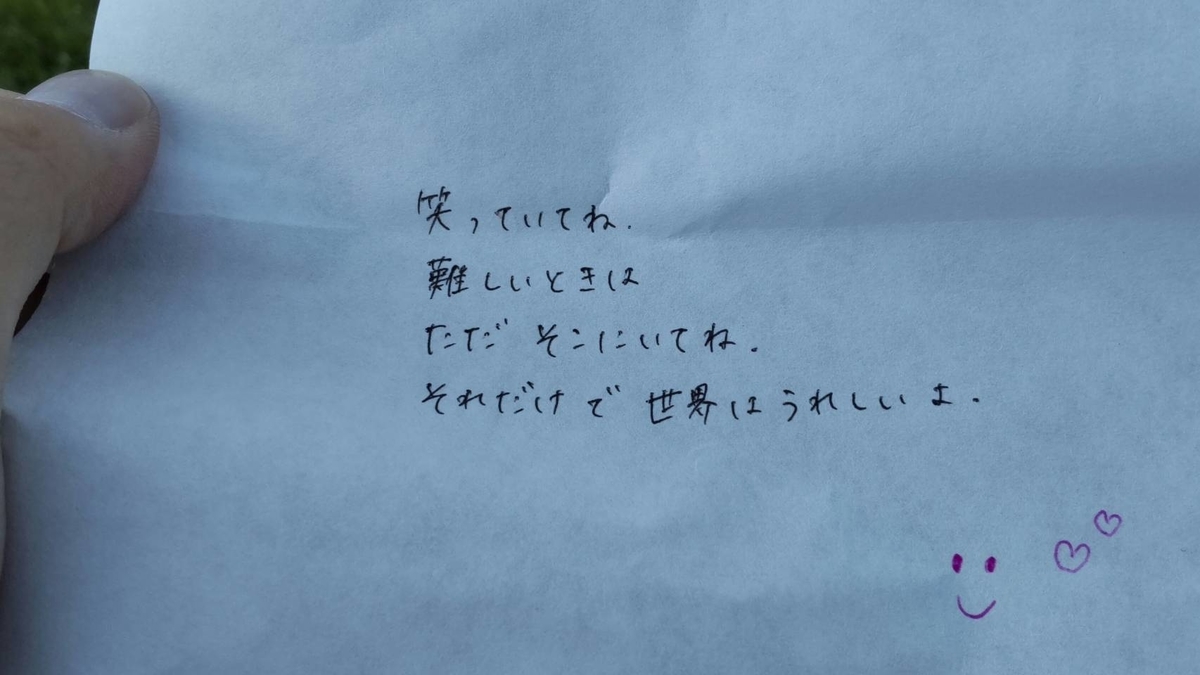 笑っていてね.
難しいときは
ただ そこにいてね.
それだけで 世界はうれしいよ.